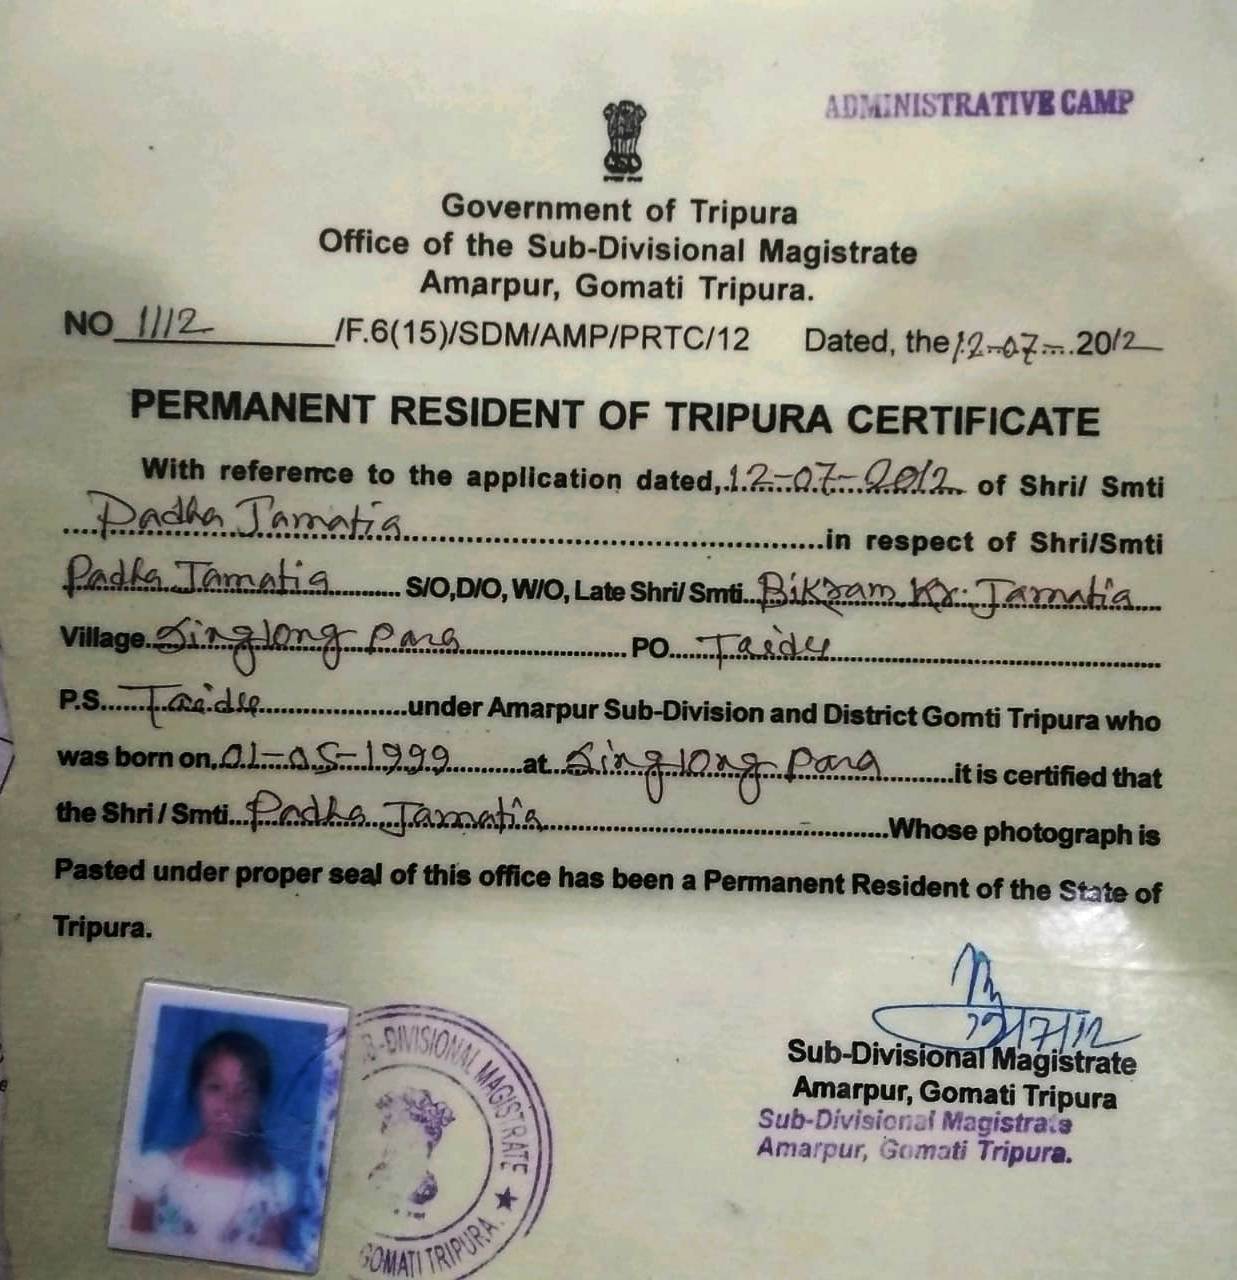 ADMINISTRATIVE CAMP
Government of Tripura
Office of the Sub-Divisional Magistrate
Amarpur, Gomati Tripura.
NO 1112 /F.6(15)/SDM/AMP/PRTC/12 Dated, the 12-07-2012
PERMANENT RESIDENT OF TRIPURA CERTIFICATE
With reference to the application dated, 12-07-2012 of Shri/ Smti
Padha Jamatia in respect of Shri/Smti
Padha Jamatia S/O,D/O, W/O, Late Shri/ Smti Bikram Kr. Jamatia
Village Singlong Para PO Taidu
P.S. Taidu under Amarpur Sub-Division and District Gomti Tripura who
was born on, 01-05-1999 at Singlong Para it is certified that
the Shri / Smti Padha Jamatia Whose photograph is
Pasted under proper seal of this office has been a Permanent Resident of the State of
Tripura.
DIVISIONAL MAGISTRATE ★
GOMATI TRIPURA
/7/12
Sub-Divisional Magistrate
Amarpur, Gomati Tripura
Sub-Divisional Magistrate
Amarpur, Gomati Tripura.